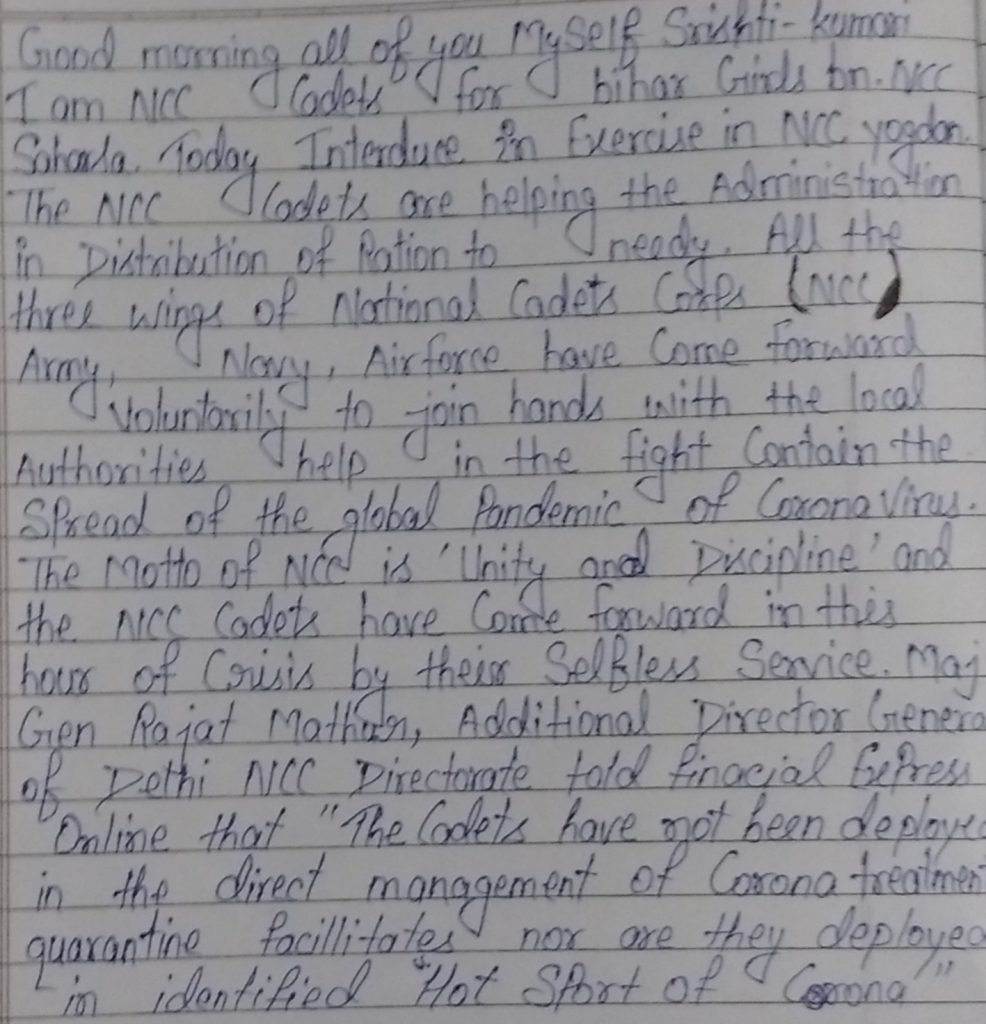 Good morning all of you Myself Srishti-kumari
I am NCC Cadets for bihar Girls bn. NCC
Today Interduce in Exercise in NCC yogdan.
The NCC Cadets are helping the Administration
in Distribution of Ration to needy. All the
three wings of National Cadets Corps (NCC)
Army, Navy, Airforce have Come forward
Voluntarily to join hands with the local
Authorities help in the fight Contain the
Spread of the global Pandemic of Corona Virus.
The Motto of NCC is 'Unity and Discipline' and
the NCC Cadets have Come forward in this
hour of Crisis by their Selfless Service. Maj
Gen Rajat Mathur, Additional Director Genera
of Delhi NCC Directorate told finacial Express
Online that "The Cadets have not been deploye
in the direct management of Corona treatmen
quarantine facillitates nor are they deployed
in identified "Hot Sport of Corona"